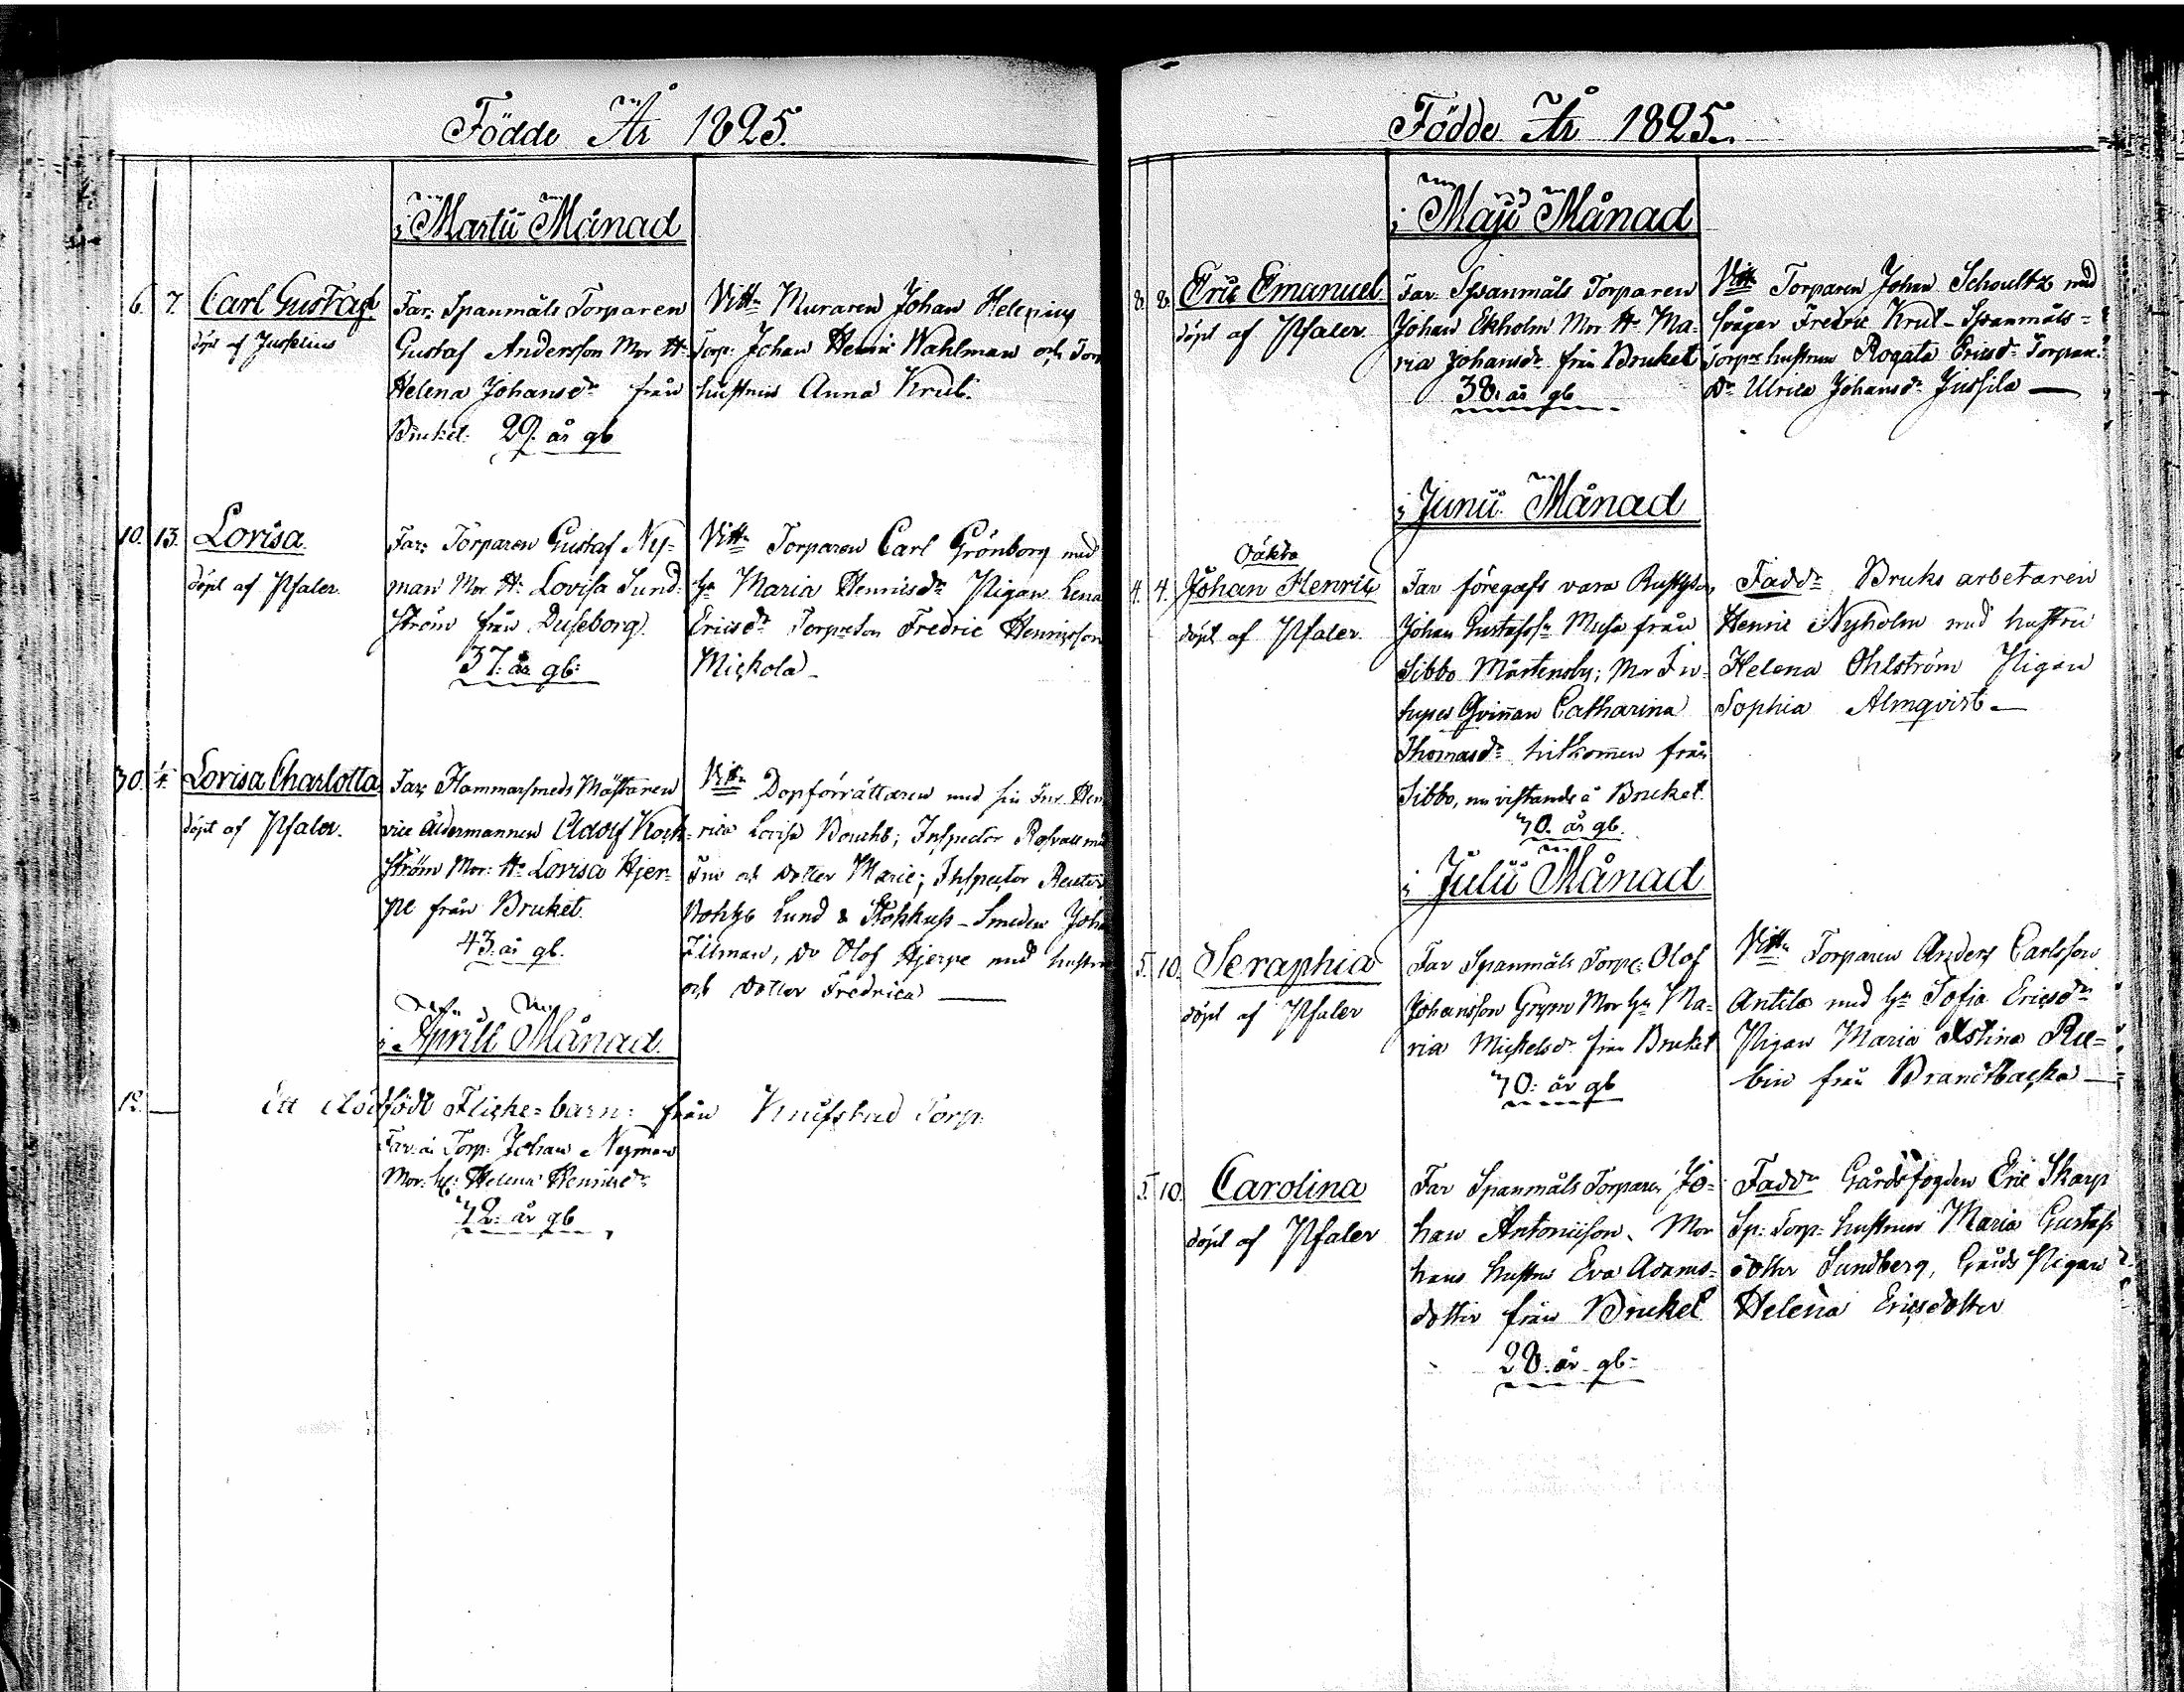 Födde År 1825.
i Martii Månad
6. 7. Carl Gustaf
döpt af Juselius
Far: Spanmåls Torparen
Gustaf Andersson Mor H:
Helena Johansdr från
Bruket. 29. år gb
Vittn Muraren Johan Helenius
Torp: Johan Henric Wahlman och Torp
hustrun Anna Krut.
10. 13. Lovisa.
döpt af Pfaler.
Far: Torparen Gustaf Ny-
man Mor H: Lovisa Sund-
ström från Duseborg.
37. år gb:
Vittn Torparen Carl Grönborg med
Maria Henricsdr Pigan Lena
Ericsdr Torpareson Fredric Henricsson
Mickola
30. Lovisa Charlotta
döpt af Pfaler.
Far: Hammarsmeds Mästaren
vice åldermannen Adolf Kock-
ström Mor: H: Lovisa Hjer-
pe från Bruket.
43. år gb.
Vittn Dopförrättaren med sin Fru Hen-
rica Lovisa Inspector med
Fru och dotter Marie; Inspector
Bokh: Lund & Smeden Joh
Zilman, Do Olof Hjerpe med hustru
och dotter Fredrica
i Aprill Månad.
12. — Ett dödfödt Flicke-barn: från Torp.
Far: Torp: Johan Nyman
Mor: h: Helena Henricsdr
42: år gb
Födde År 1825.
i Maji Månad
8. 8. Eric Emanuel
döpt af Pfaler.
Far: Spanmåls Torparen
Johan Ekholm Mor H: Ma-
ria Johansdr från Bruket
38. år gb
Vittn Torparen Johan Schoultz med
Fredric Krut - Spanmåls-
Torpr hustrun Rogata Ericsdr Torpare
Dr Ulrica Johansdr Jussila —
i Junii Månad
Oäkta
4. 4. Johan Henric
döpt af Pfaler.
Far föregafs vara
Johan Gustafssn Musa från
Sibbo Mårtensby; Mor In-
hyses Qvinnan Catharina
Thomasdr hitkommen från
Sibbo, nu vistande å Bruket.
40. år gb.
Faddr Bruks arbetaren
Henric Nyholm med hustru
Helena Ohlström Pigan
Sophia Almqvist —
i Julii Månad
5. 10. Seraphia
döpt af Pfaler
Far Spanmåls Torp: Olof
Johansson Grym Mor Hu Ma-
ria Mickelsdr från Bruket
40: år gb
Vittn Torparen Anders Carlsson
Antila med Hu Sofia Ericsdr
Pigan Maria Stina Ru-
bin från Brandbacka —
5. 10. Carolina
döpt af Pfaler
Far Spanmåls Torparen Jo-
han Antoniison. Mor
hans hustru Eva Adams-
dotter från Bruket
28. år gb:
Faddr Gårdsfogden Eric Skarp
Sp: Torp: hustrun Maria Gustafs
dotter Sundberg, Gårds Pigan
Helena Ericsdotter